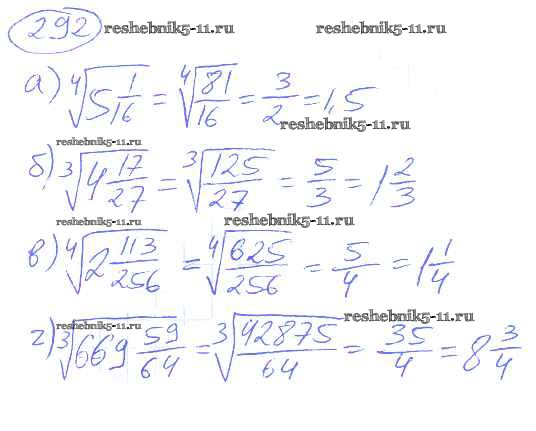 292 reshebnik5-11.ru reshebnik5-11.ru
а) ⁴√(5 1/16) = ⁴√(81/16) = 3/2 = 1,5
reshebnik5-11.ru
reshebnik5-11.ru
б) ³√(4 17/27) = ³√(125/27) = 5/3 = 1 2/3
reshebnik5-11.ru reshebnik5-11.ru
в) ⁴√(2 113/256) = ⁴√(625/256) = 5/4 = 1 1/4
reshebnik5-11.ru reshebnik5-11.ru
г) ³√(669 59/64) = ³√(42875/64) = 35/4 = 8 3/4